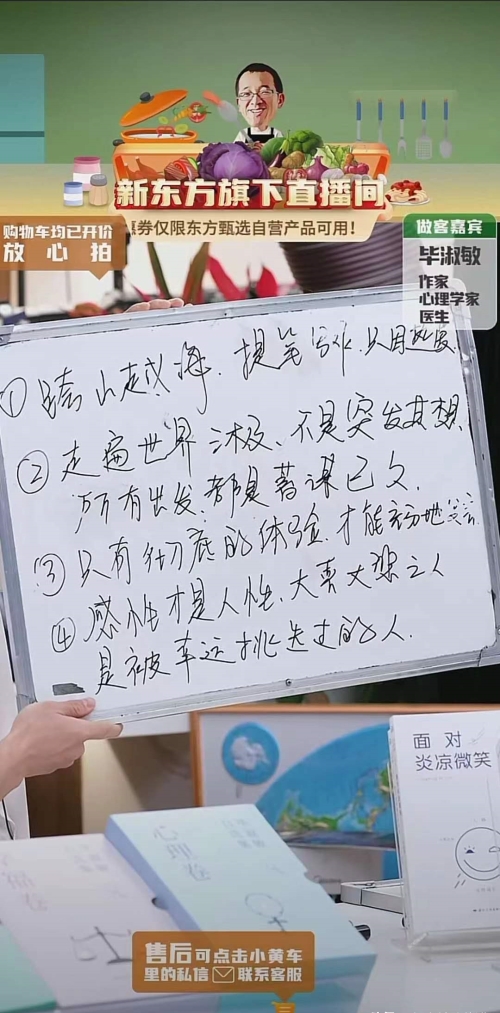 新东方旗下直播间
惠券仅限东方甄选自营产品可用！
购物车均已开价
放心拍
做客嘉宾
毕淑敏
作家
心理学家
医生
①跨山越海，提笔写作，只用
②走遍世界三极，不是突发其想
所有出发，都是蓄谋已久，
③只有彻底的体验，才能充分地
④感性才是人性，大喜大悲之人
是被幸运挑选过的人.
面对
炎凉微笑
心理卷
售后可点击小黄车
里的私信联系客服